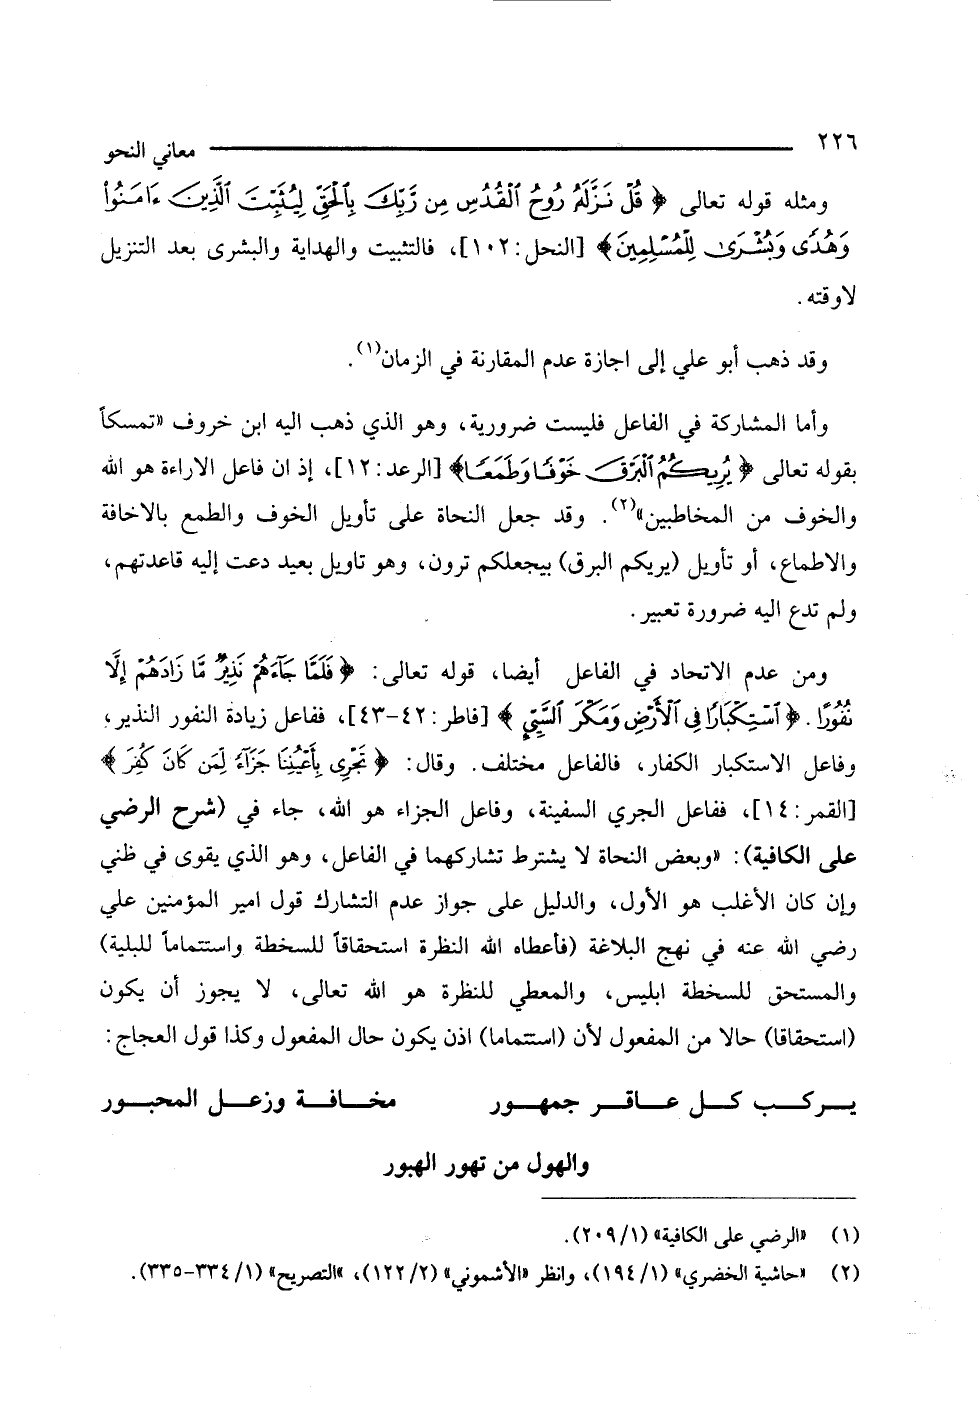 ٢٢٦ معاني النحو
ومثله قوله تعالى ﴿ قُلْ نَزَّلَهُ رُوحُ ٱلْقُدُسِ مِن رَّبِّكَ بِٱلْحَقِّ لِيُثَبِّتَ ٱلَّذِينَ ءَامَنُوا۟
وَهُدًى وَبُشْرَىٰ لِلْمُسْلِمِينَ﴾ [النحل: ١٠٢]، فالتثبيت والهداية والبشرى بعد التنزيل
لاوقته.
وقد ذهب أبو علي إلى اجازة عدم المقارنة في الزمان(١).
وأما المشاركة في الفاعل فليست ضرورية، وهو الذي ذهب اليه ابن خروف «تمسكاً
بقوله تعالى ﴿ يُرِيكُمُ ٱلْبَرْقَ خَوْفًا وَطَمَعًا﴾ [الرعد: ١٢]، إذ ان فاعل الاراءة هو الله
والخوف من المخاطبين»(٢). وقد جعل النحاة على تأويل الخوف والطمع بالاخافة
والاطماع، أو تأويل (يريكم البرق) بيجعلكم ترون، وهو تاويل بعيد دعت إليه قاعدتهم،
ولم تدع اليه ضرورة تعبير.
ومن عدم الاتحاد في الفاعل أيضا، قوله تعالى: ﴿ فَلَمَّا جَآءَهُمْ نَذِيرٌ مَّا زَادَهُمْ إِلَّا
نُفُورًا . ﴿ ٱسْتِكْبَارًا فِى ٱلْأَرْضِ وَمَكْرَ ٱلسَّيِّئِ ﴾ [فاطر: ٤٢-٤٣]، ففاعل زيادة النفور النذير،
وفاعل الاستكبار الكفار، فالفاعل مختلف. وقال: ﴿ تَجْرِى بِأَعْيُنِنَا جَزَآءً لِّمَن كَانَ كُفِرَ ﴾
[القمر: ١٤]، ففاعل الجري السفينة، وفاعل الجزاء هو الله، جاء في (شرح الرضي
على الكافية): «وبعض النحاة لا يشترط تشاركهما في الفاعل، وهو الذي يقوى في ظني
وإن كان الأغلب هو الأول، والدليل على جواز عدم التشارك قول امير المؤمنين علي
رضي الله عنه في نهج البلاغة (فأعطاه الله النظرة استحقاقاً للسخطة واستتماماً للبلية)
والمستحق للسخطة ابليس، والمعطي للنظرة هو الله تعالى، لا يجوز أن يكون
(استحقاقا) حالا من المفعول لأن (استتماما) اذن يكون حال المفعول وكذا قول العجاج:
يـركـب كـل عـاقـر جمهـور مخـافـة وزعـل المحبـور
والهول من تهور الهبور
(١) «الرضي على الكافية» (٢٠٩/١).
(٢) «حاشية الخضري» (١٩٤/١)، وانظر «الأشموني» (١٢٢/٢)، «التصريح» (٣٣٤/١-٣٣٥).